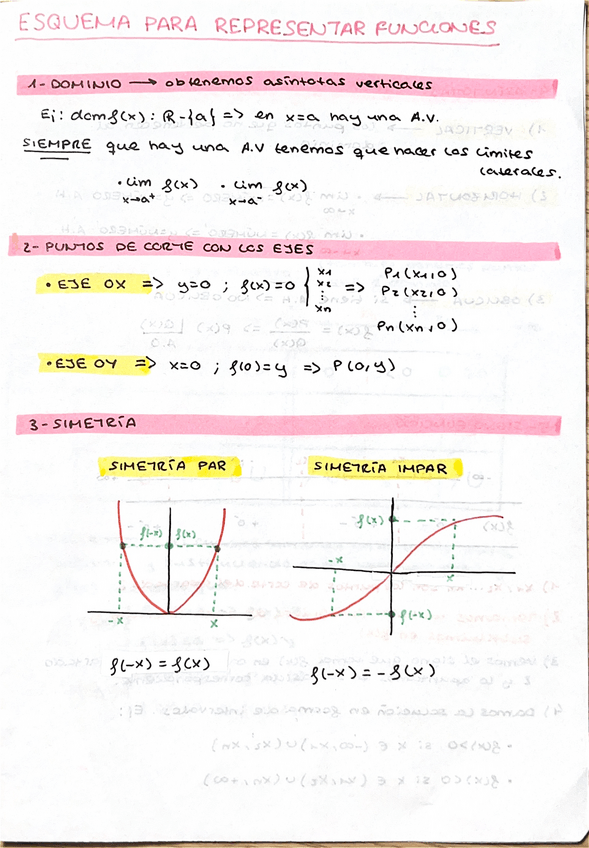 ESQUEMA PARA REPRESENTAR FUNCIONES
1- DOMINIO → obtenemos asíntotas verticales
Ej: domf(x): R-{a} => en x=a hay una A.V.
SIEMPRE que hay una A.V tenemos que hacer los límites
laterales.
· lim f(x) · lim f(x)
x→a⁺ x→a⁻
2- PUNTOS DE CORTE CON LOS EJES
· EJE OX => y=0 ; f(x)=0 { x1 x2 ⋮ xn => P1(x1,0)
P2(x2,0)
⋮
Pn(xn,0)
· EJE OY => x=0 ; f(0)=y => P(0,y)
3- SIMETRÍA
SIMETRÍA PAR SIMETRÍA IMPAR
f(-x) f(x)
-x x
f(x)
-x x
f(-x)
f(-x) = f(x)
f(-x) = -f(x)